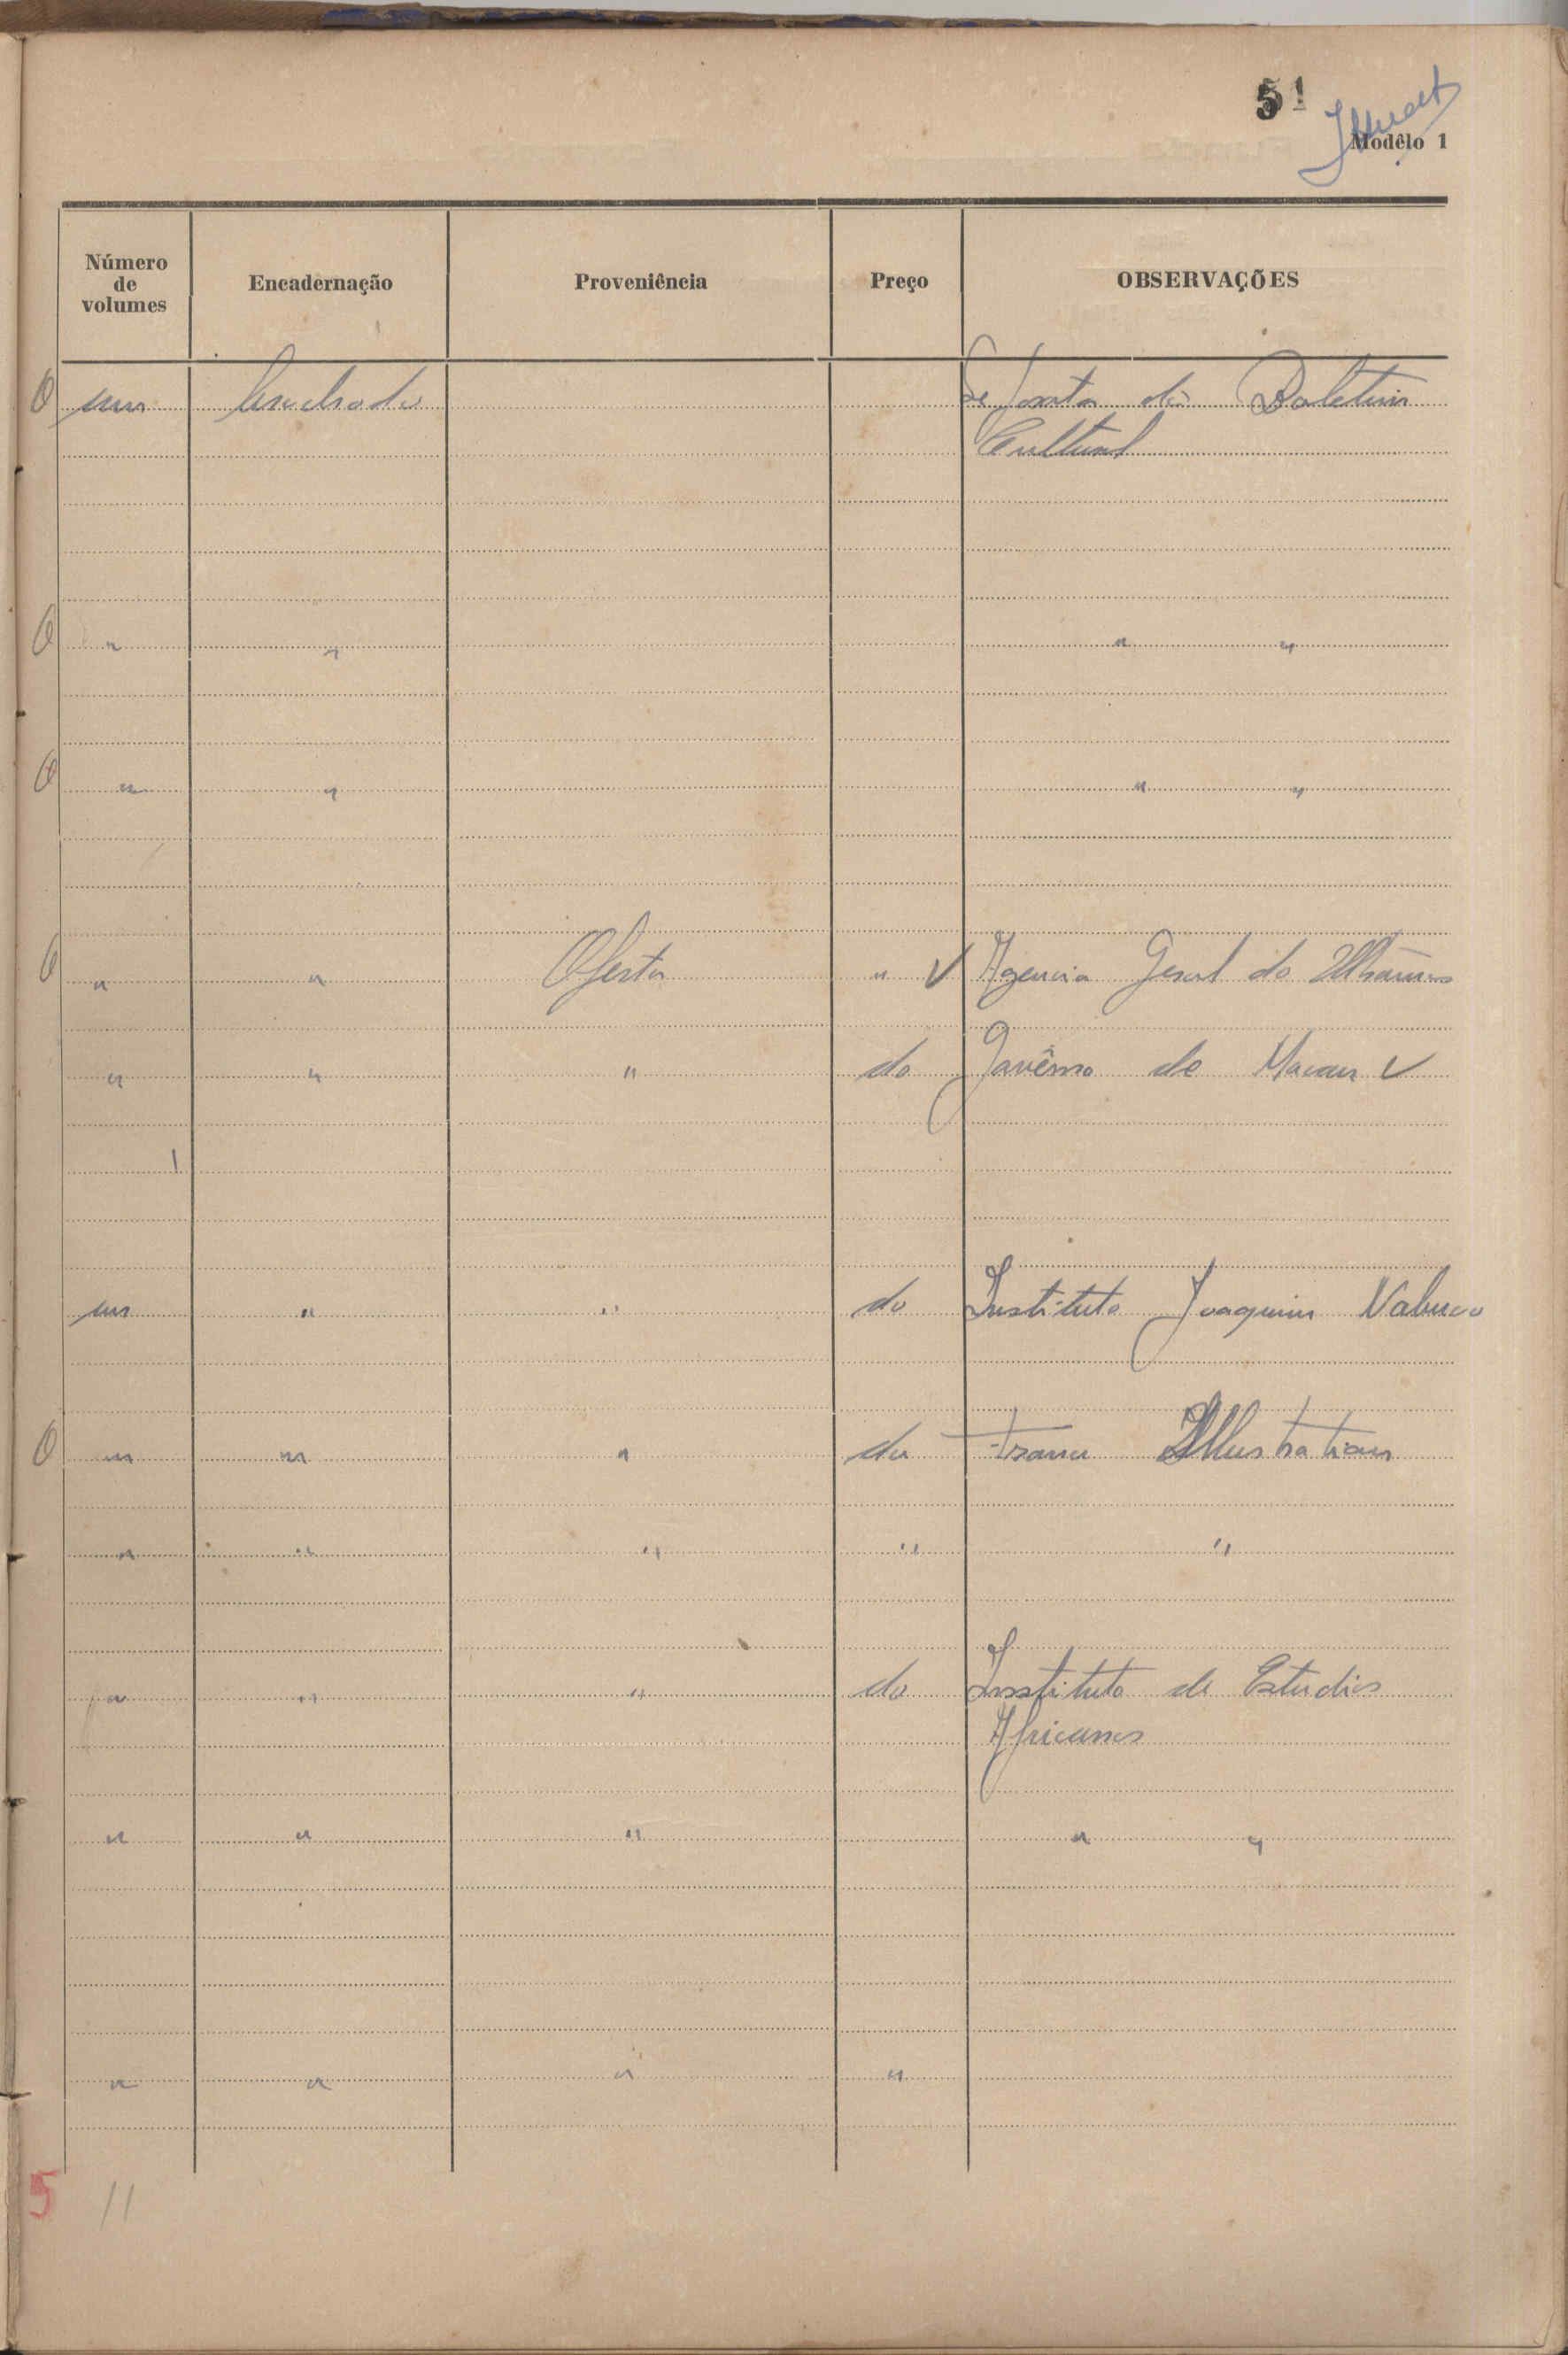 51
Modêlo 1
Número de volumes Encadernação Proveniência Preço OBSERVAÇÕES
O um Brochado Separata do Boletim
Cultural
O " " " "
O " " " "
O " " Oferta " V Agencia Geral do Ultramar
" " " do Govêrno de Macau V
1
um " " do Instituto Joaquim Nabuco
O " " " da Franu Illustration
" " " " "
" " " do Instituto de Estudios
Africanos
" " " " "
" " " "
5 11